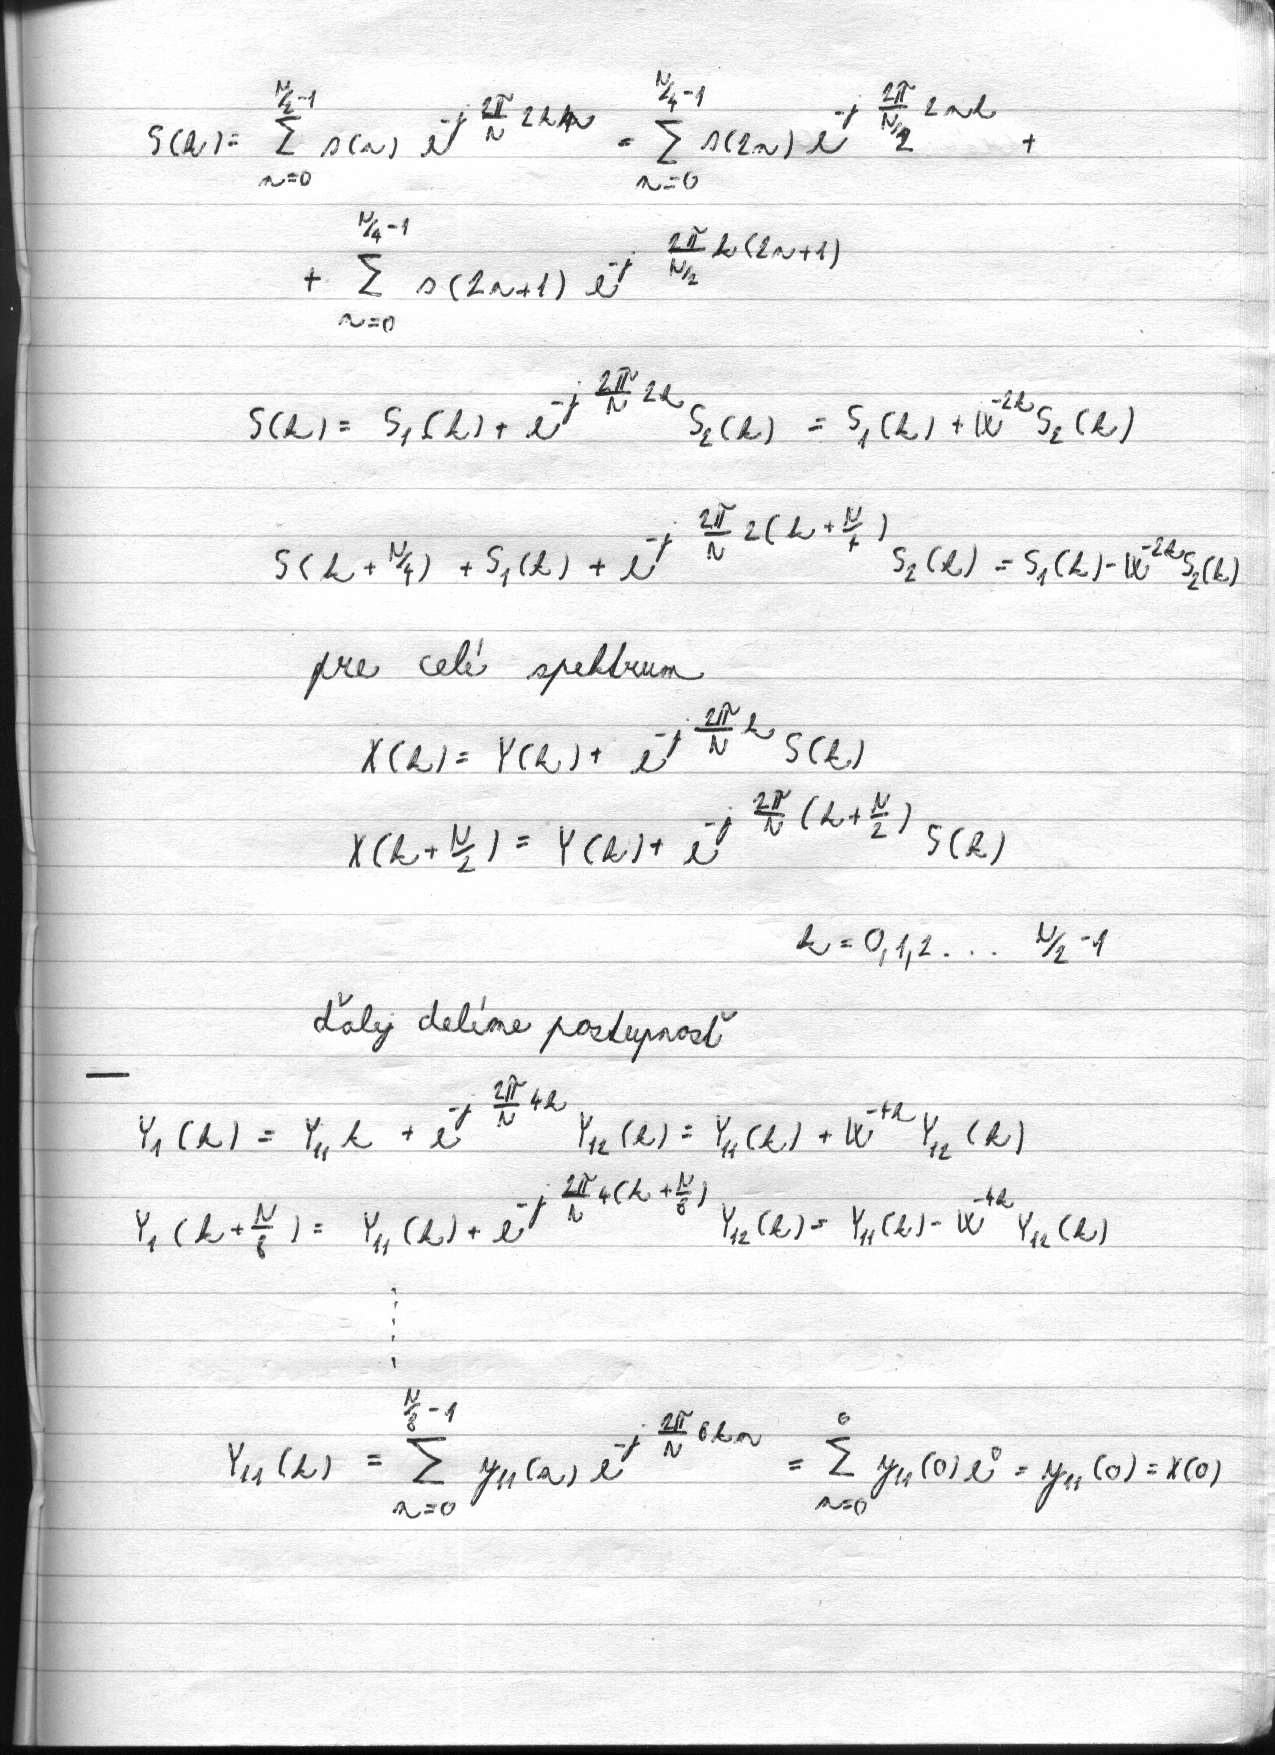 S(k) = \sum_{n=0}^{N/2-1} s(n) e^{-j \frac{2\pi}{N} 2kn} = \sum_{n=0}^{N/4-1} s(2n) e^{-j \frac{2\pi}{N/2} 2nk} +
+ \sum_{n=0}^{N/4-1} s(2n+1) e^{-j \frac{2\pi}{N/2} k(2n+1)}
S(k) = S_1(k) + e^{-j \frac{2\pi}{N} 2k} S_2(k) = S_1(k) + W^{-2k} S_2(k)
S(k + N/4) + S_1(k) + e^{-j \frac{2\pi}{N} 2(k + \frac{N}{4})} S_2(k) = S_1(k) - W^{-2k} S_2(k)
pre celé spektrum
X(k) = Y(k) + e^{-j \frac{2\pi}{N} k} S(k)
X(k + \frac{N}{2}) = Y(k) + e^{-j \frac{2\pi}{N} (k + \frac{N}{2})} S(k)
k = 0,1,2 . ... N/2 - 1
ďalej delíme postupnosť
Y_1(k) = Y_{11} k + e^{-j \frac{2\pi}{N} 4k} Y_{12}(k) = Y_{11}(k) + W^{-4k} Y_{12}(k)
Y_1(k + \frac{N}{8}) = Y_{11}(k) + e^{-j \frac{2\pi}{N} 4(k + \frac{N}{8})} Y_{12}(k) = Y_{11}(k) - W^{-4k} Y_{12}(k)
Y_{11}(k) = \sum_{n=0}^{\frac{N}{8}-1} y_{11}(n) e^{-j \frac{2\pi}{N} 8kn} = \sum_{n=0}^{0} y_{11}(0) e^0 = y_{11}(0) = X(0)